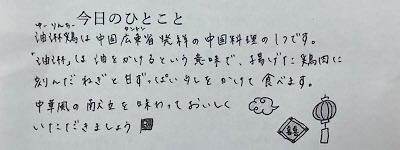 今日のひとこと
ゆーりんちー カントン
油淋鶏は中国広東省発祥の中国料理の1つです。
「油淋」は油をかけるという意味で、揚げた鶏肉に
刻んだねぎと甘ずっぱいタレをかけて食べます。
中華風の献立を味わっておいしく
いただきましょう